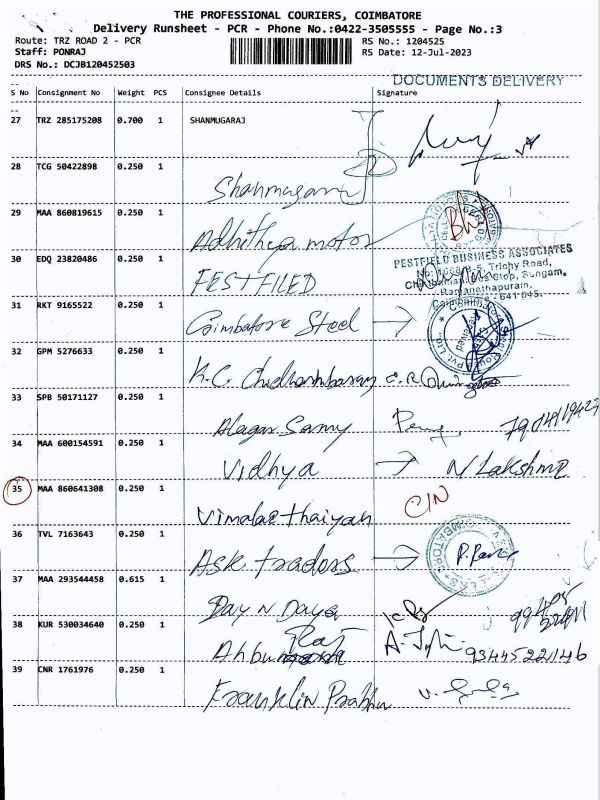 THE PROFESSIONAL COURIERS, COIMBATORE
Delivery Runsheet - PCR - Phone No.:0422-3505555 - Page No.:3
Route: TRZ ROAD 2 - PCR RS No.: 1204525
Staff: PONRAJ RS Date: 12-Jul-2023
DRS No.: DCJB120452503
DOCUMENTS DELIVERY
S No Consignment No Weight PCS Consignee Details Signature
27 TRZ 285175208 0.700 1 SHANMUGARAJ
28 TCG 50422898 0.250 1
Shanmugam
29 MAA 860819615 0.250 1
Adhithya motor
30 EDQ 23820486 0.250 1
PESTFIELD BUSINESS ASSOCIATES
Trichy Road,
Stop, Sungam,
Ramanathapuram,
FESTFILED
31 RKT 9165522 0.250 1
Coimbatore Steel
32 GPM 5276633 0.250 1
K.C.
33 SPB 50171127 0.250 1
Alagar Samy
34 MAA 600154591 0.250 1
Vidhya N Lakshmi
35 MAA 860641308 0.250 1
CIN
36 TVL 7163643 0.250 1
ASK traders
37 MAA 293544458 0.615 1
Day N Daya
38 KUR 530034640 0.250 1
9344522146
39 CNR 1761976 0.250 1
Franklin Prabhu